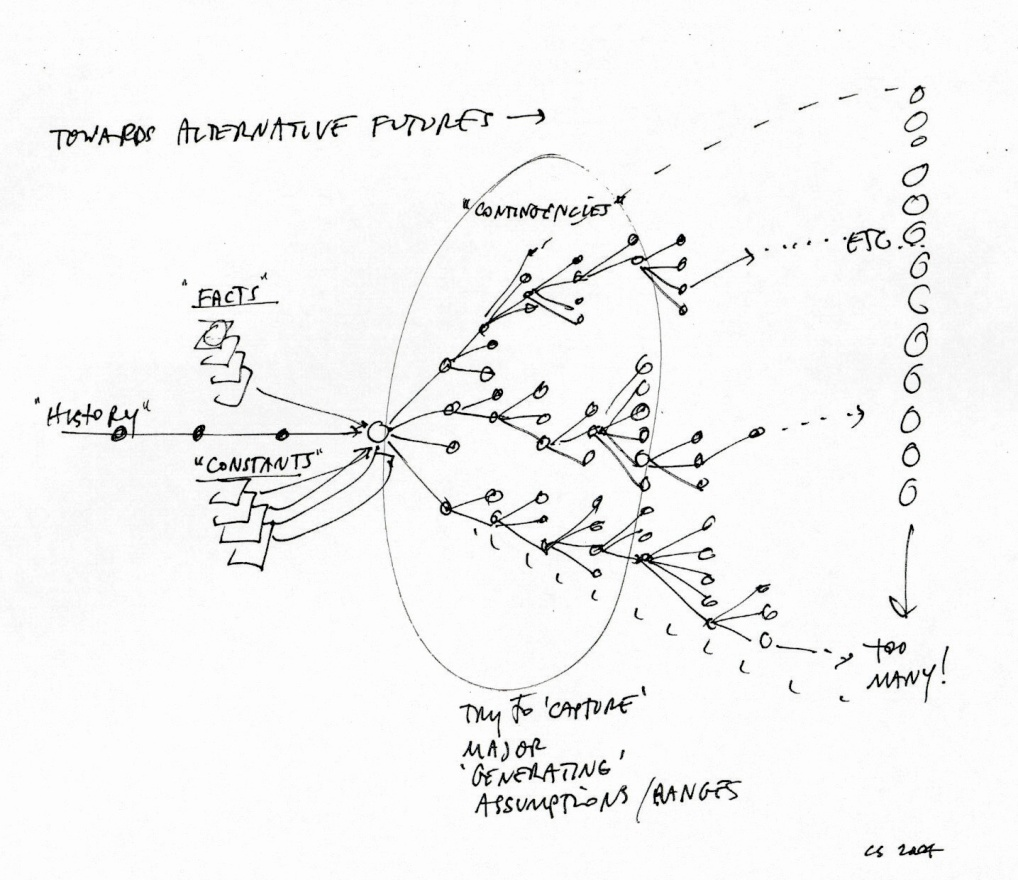 TOWARDS ALTERNATIVE FUTURES →
"CONTINGENCIES"
ETC.
"FACTS"
"HISTORY"
"CONSTANTS"
TOO
MANY!
TRY TO 'CAPTURE'
MAJOR
'GENERATING'
ASSUMPTIONS / RANGES
CS 2004